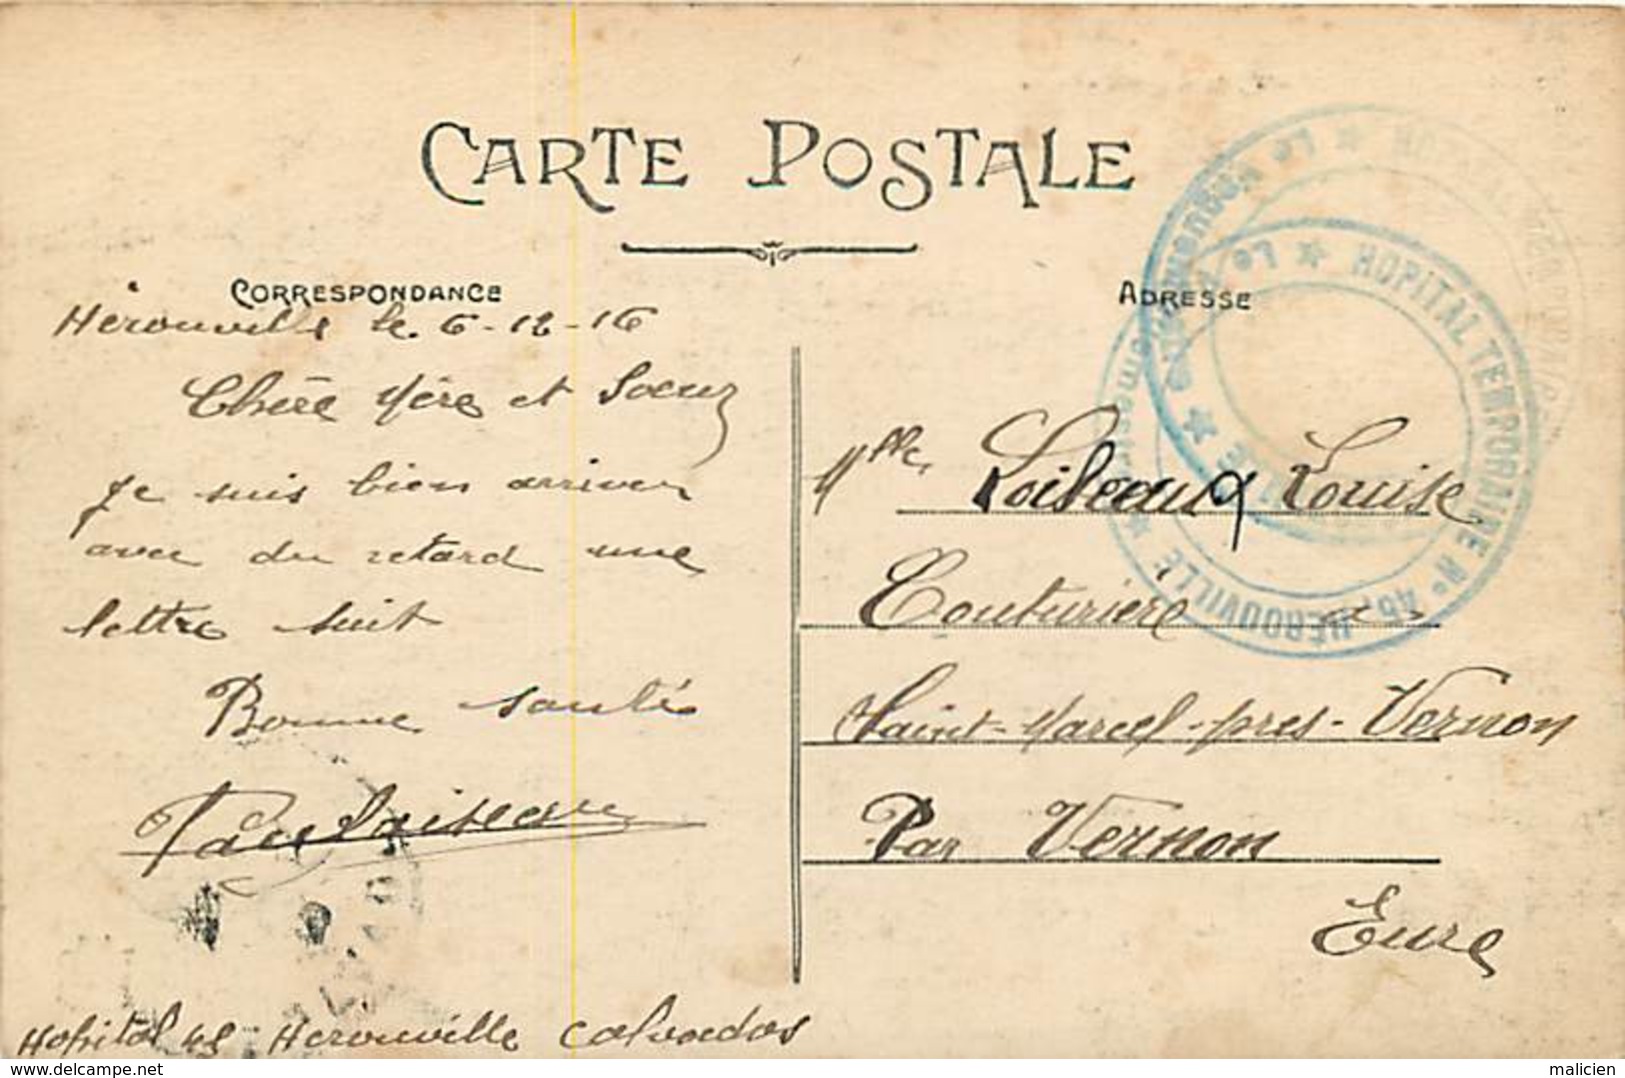 CARTE POSTALE
CORRESPONDANCE
Hérouville le 6-12-16
Chère Mère et Soeur
Je suis bien arriver
avec du retard une
lettre suit
Bonne santé
Paul Loiseau
Hopital 45 Herouville Calvados
ADRESSE
Mlle Loiseaux Louise
Couturière
Saint-Marcel-près-Vernon
Par Vernon
Eure
HOPITAL TEMPORAIRE N° 45, HÉROUVILLE ★ Le ★
Le ★ HOPITAL TEMPORAIRE
delcampe.net
malicien